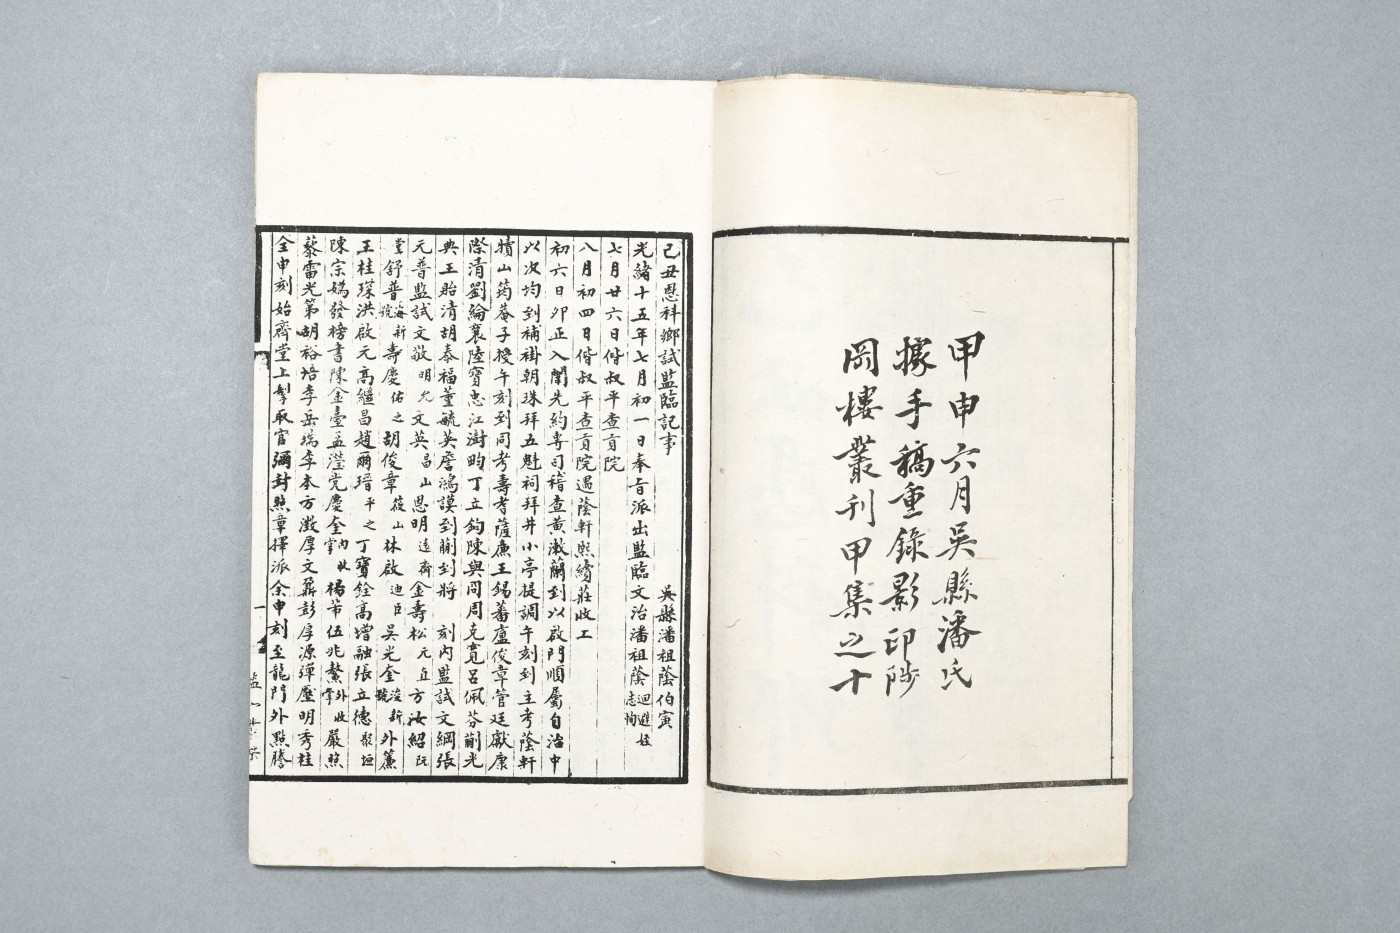 甲申六月吳縣潘氏
據手稿重錄影印陟
岡樓叢刊甲集之十
己丑恩科鄉試監臨記事
吳縣潘祖蔭伯寅
光緒十五年七月初一日奉旨派出監臨文治潘祖蔭迴避姪志恂
七月廿六日偕叔平查貢院
八月初四日偕叔平查貢院遇蔭軒熙續莊收工
初六日卯正入闈先約專司稽查黃漱蘭到以啟門順屬自治中
以次均到補褂朝珠拜五魁祠拜井小亭提調午刻到主考蔭軒
犢山筠菴子授午刻到同考壽耆薩廉王錫蕃盧俊章管廷獻康
際清劉綸襄陸寶忠江澍畇丁立鈞陳與冏周克寬呂佩芬蒯光
典王貽清胡泰福董毓英詹鴻謨到蒯到將 刻內監試文綱張
元普監試文敬明允文英昌山恩明遠齋金壽松元直方汝紹阮
堂舒普海新號壽慶佑之胡俊章筱山林啟迪臣吳光奎浚新號外簾
王桂琛洪啟元高繼昌趙爾瑨平之丁寶銓高增融張立德聚垣
陳宗媯發榜書陳金臺孟瀅党慶奎內收掌楊芾伍兆鰲外收掌嚴照
藜雷光第胡裕培李岳瑞李本方瀓厚文鼐彭厚源彈壓明秀桂
全申刻始齊堂上掣取官彌封照章擇派余申刻至龍門外點謄
一